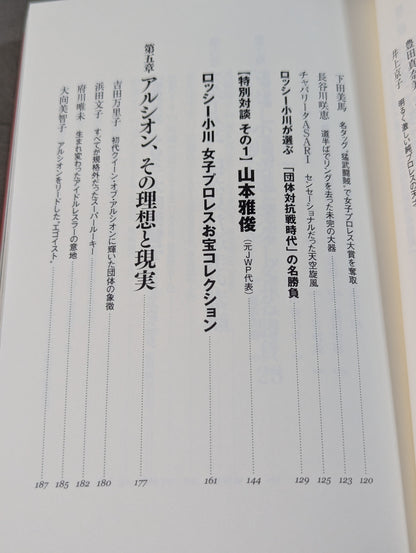 豊田真奈美
井上京子
明るく激しい
下田美馬
名タッグ“猛武闘賊”で女子プロレス大賞を奪取
120
長谷川咲恵
道半ばでリングを去った未完の大器
123
チャパリータASARI
センセーショナルだった天空旋風
125
ロッシー小川が選ぶ 「団体対抗戦時代」の名勝負
129
【特別対談 その1】 山本雅俊(元JWP代表)
144
ロッシー小川 女子プロレスお宝コレクション
161
第五章 アルシオン、その理想と現実
177
吉田万里子
初代クイーン・オブ・アルシオンに輝いた団体の象徴
180
浜田文子
すべてが規格外だったスーパールーキー
182
府川唯未
生まれ変わったアイドルレスラーの意地
185
大向美智子
アルシオンをリードした“エゴイスト”
187